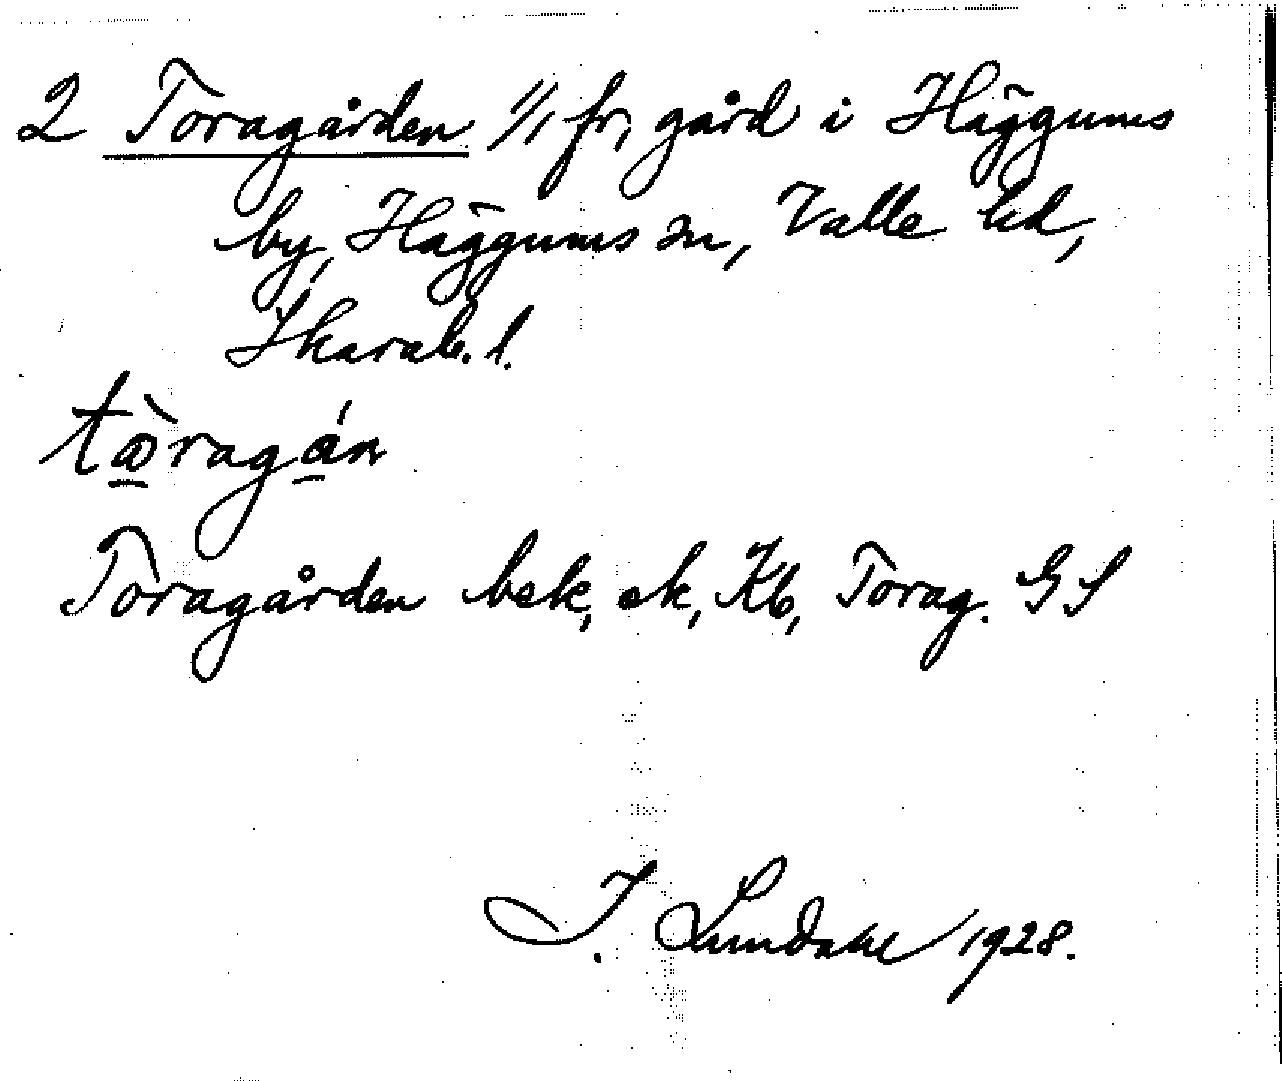 2 Toragården 1/1 fr, gård i Häggums
by, Häggums sn, Valle hd,
Skarab. l.
Toragården bek, ek, Kb, Torag. GS
I. Lundahl 1928.